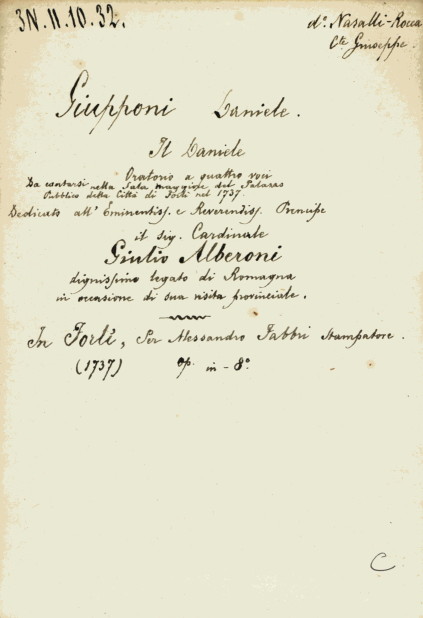 3N.11.10.32.
d° Nasalli-Rocca
Cte Giuseppe.
Giupponi Daniele.
Il Daniele
Oratorio a quattro voci
Da cantarsi nella Sala maggiore del Palazzo
Pubblico della Città di Forlì nel 1737.
Dedicato all' Eminentiss. e Reverendiss. Principe
il sig. Cardinale
Giulio Alberoni
dignissimo legato di Romagna
in occasione di sua visita provinciale.
In Forlì, Per Alessandro Fabbri Stampatore.
(1737) op. in-8°
C